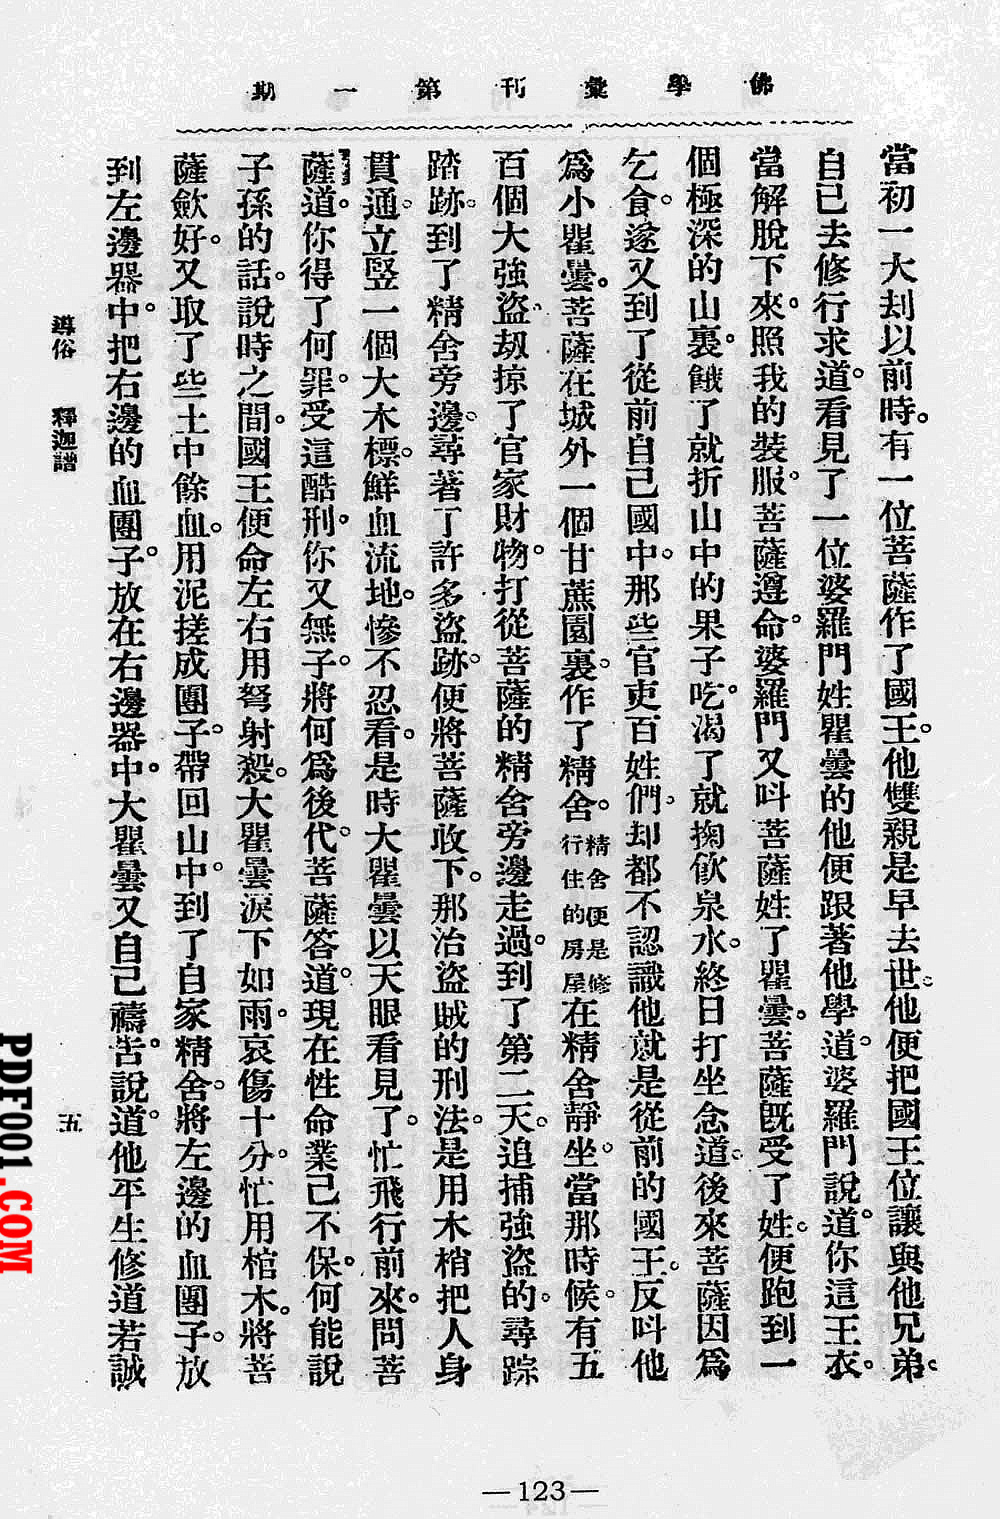 佛學彙刊第一期
當初一大刦以前時。有一位菩薩作了國王。他雙親是早去世。他便把國王位讓與他兄弟。
自已去修行求道。看見了一位婆羅門姓瞿曇的他便跟著他學道。婆羅門說道。你這王衣。
當解脫下來。照我的裝服。菩薩遵命。婆羅門又呌菩薩姓了瞿曇。菩薩旣受了姓。便跑到一
個極深的山裏。餓了就折山中的果子吃。渴了就掬飮泉水。終日打坐念道。後來菩薩因爲
乞食。遂又到了從前自己國中。那些官吏百姓們。却都不認識他就是從前的國王。反呌他
爲小瞿曇。菩薩在城外一個甘蔗園裏。作了精舍。精舍便是修行住的房屋在精舍靜坐。當那時候。有五
百個大強盜。刼掠了官家財物。打從菩薩的精舍旁邊走過。到了第二天。追捕強盜的。尋踪
踏跡。到了精舍旁邊。尋著了許多盜跡。便將菩薩收下。那治盜賊的刑法。是用木梢把人身
貫通。立竪一個大木標。鮮血流地。慘不忍看。是時大瞿曇以天眼看見了。忙飛行前來。問菩
薩道。你得了何罪。受這酷刑。你又無子。將何爲後代。菩薩答道。現在性命業已不保。何能說
子孫的話。說時之間。國王便命左右用弩射殺。大瞿曇淚下如雨。哀傷十分。忙用棺木。將菩
薩歛好。又取了些土中餘血。用泥搓成團子。帶回山中。到了自家精舍。將左邊的血團子。放
到左邊器中。把右邊的血團子。放在右邊器中。大瞿曇又自己禱告。說道。他平生修道若誠
導俗 釋迦譜
五
—123—
PDF001.COM